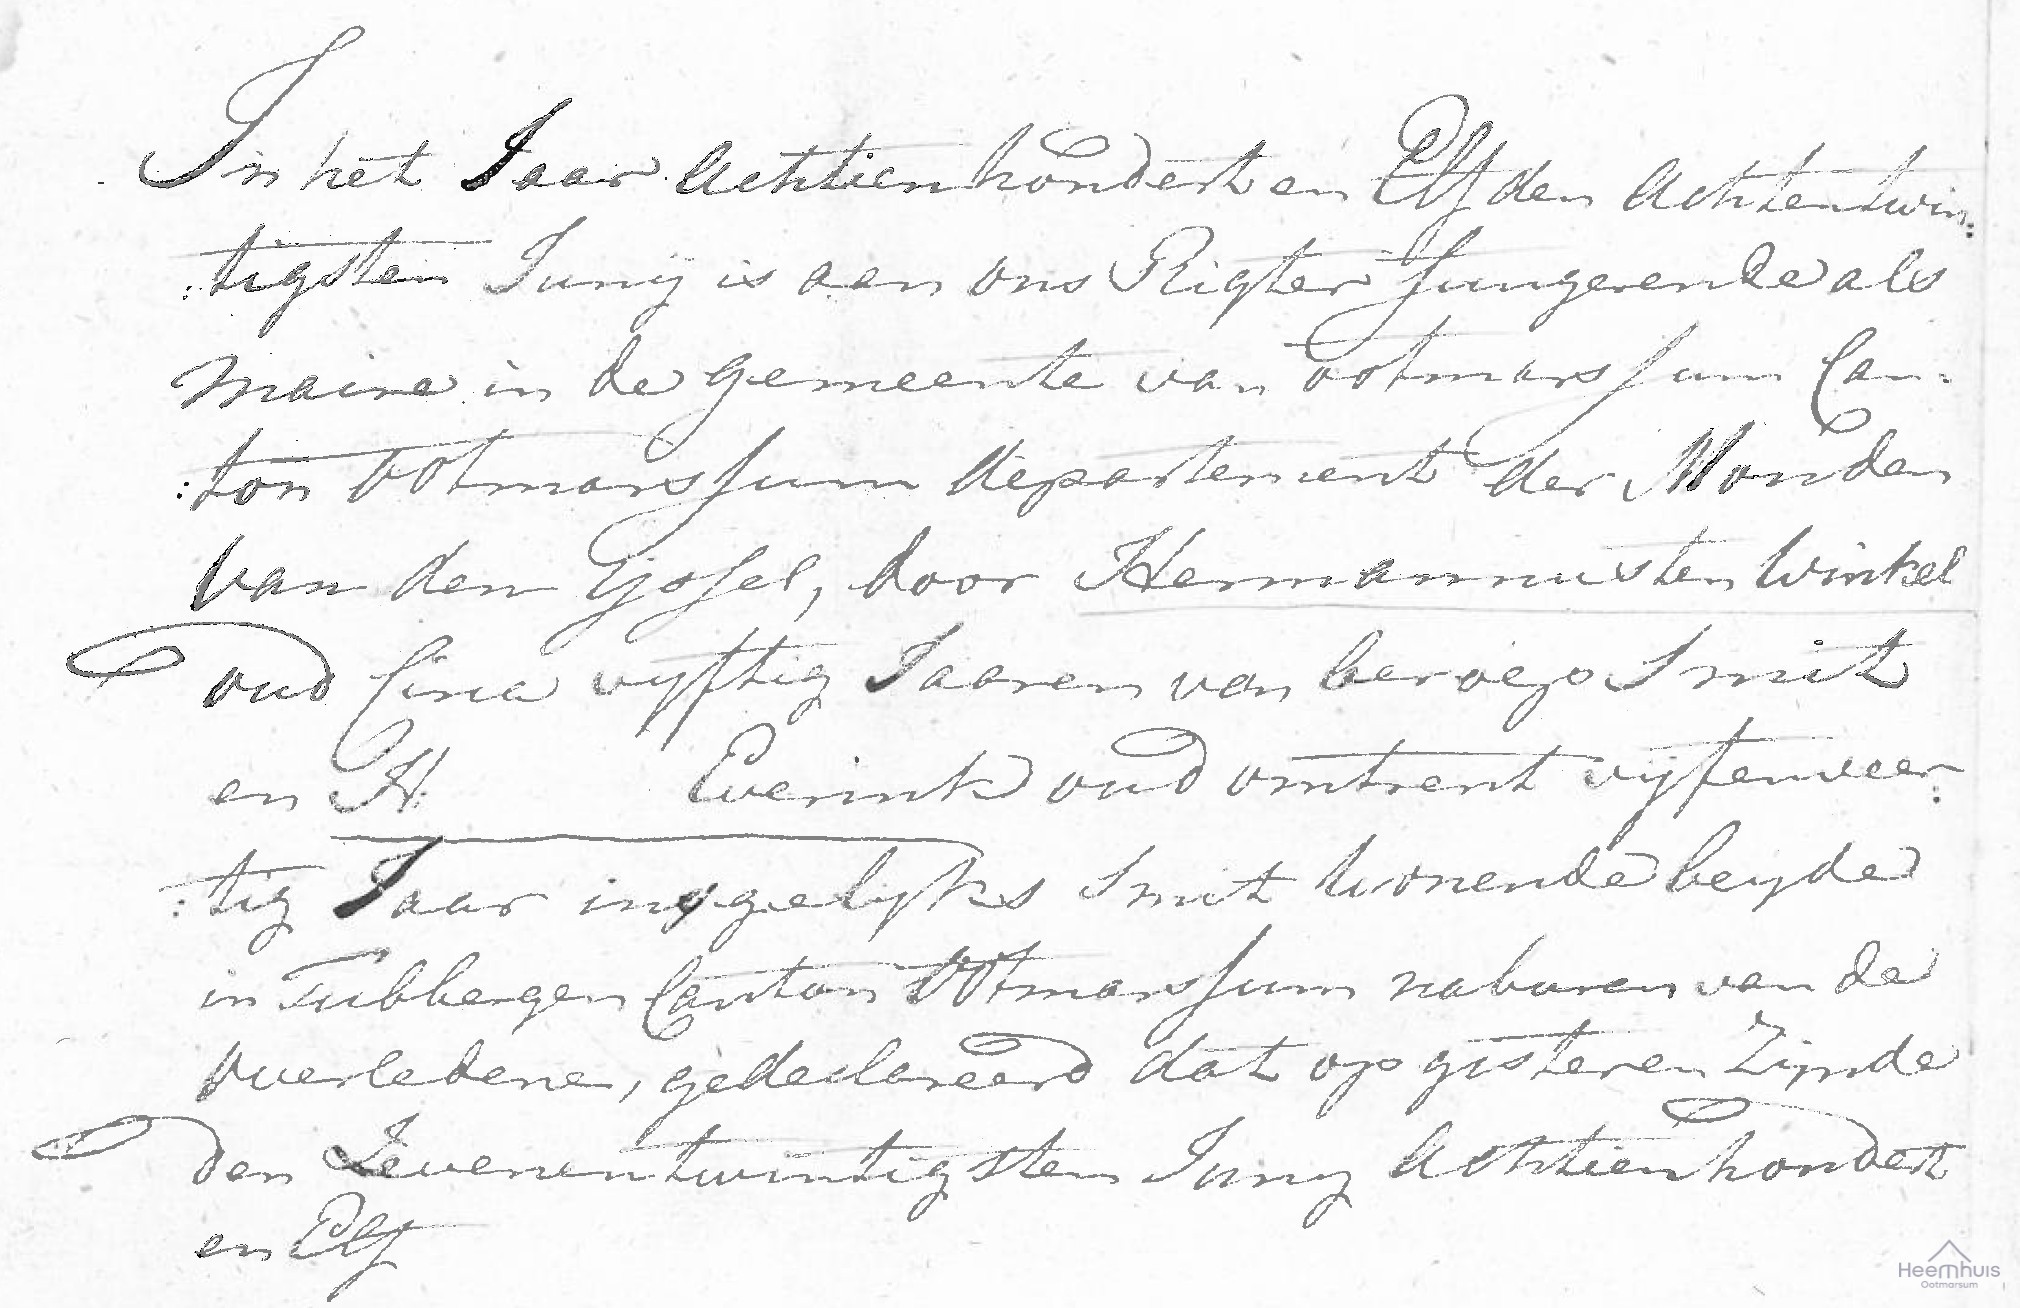 In het Jaar Achtienhondert en Elf den Achtentwin:
:tigsten Junij is aan ons Rigter fungerende als
Maire in de gemeente van Ootmarssum Can:
:ton Ootmarssum departement der Monden
van den Yssel, door Hermannus ten Winkel
oud Circa vyftig Jaaren van beroep Smit
en H Everink oud omtrent vyfenveer:
:tig Jaar insgelyks Smit wonende beyde
in Tubbergen Canton Ootmarssum naburen van de
overledene, gedeclareerd dat op gisteren Zijnde
den Zevenentwintigsten Juny Achtienhondert
en Elf
Heemhuis
Ootmarsum